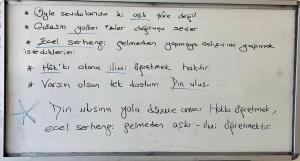 * Öyle sevdalarda ki aşk yare değil
* yolları doğruyu sever
* Ecel şerhengi gelmeden yapmaya çalışırım yapmak
istediklerimi
* Hak'kı olana ilimi öğretmek haktır
* Varsın olsun tek dostum Din ulusu
Din ulusun yola düşme amacı Hakkı öğretmek,
ecel şerhengi gelmeden aşkı - ilmi öğretmektir